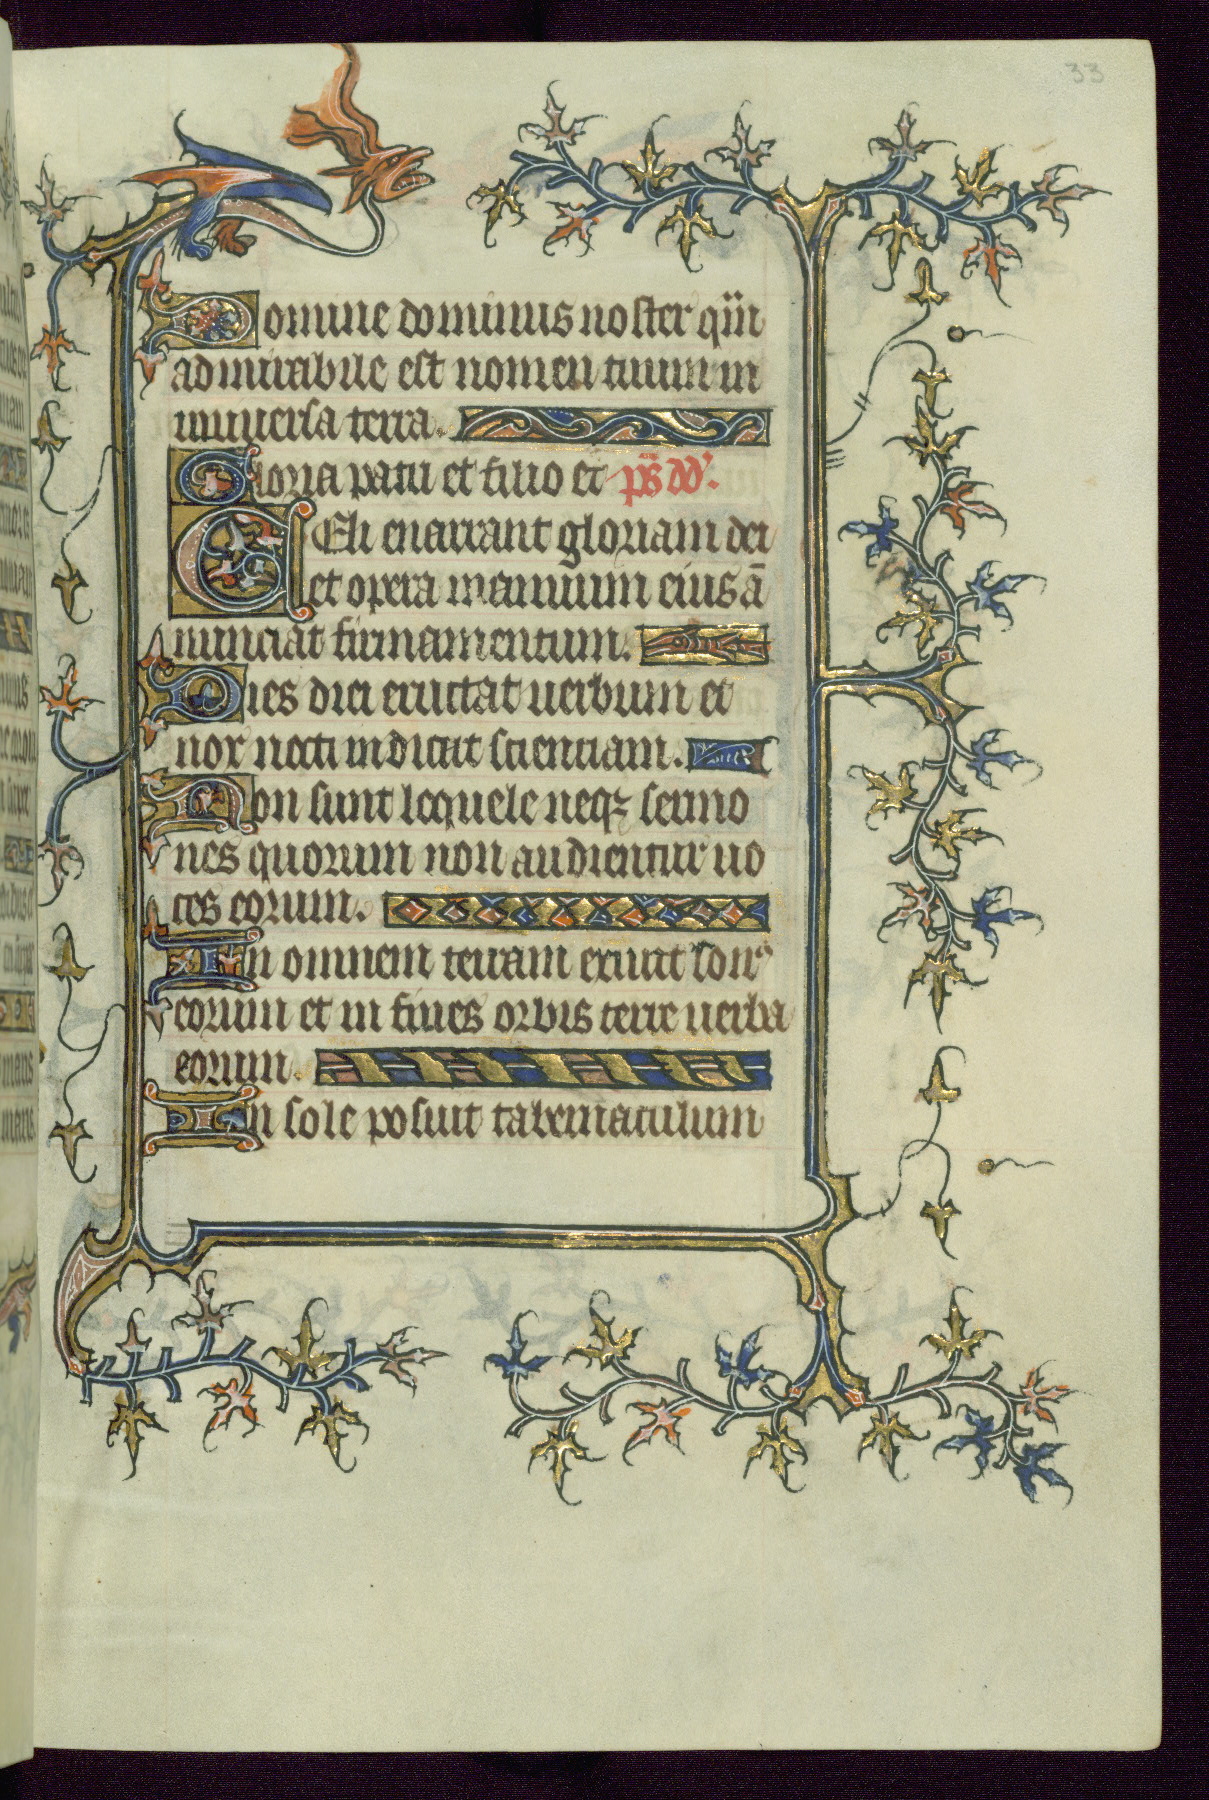 33
Domine dominus noster q̄m
admirabile est nomen tuum in
uniuersa terra.
Gloria patri et filio et p̄s dd'.
Celi enarrant gloriam dei
et opera manuum eius ā
nunciat firmamentum.
Dies diei eructat uerbum et
nox nocti indicat scientiam.
Non sunt loquele neqꝫ sermo
nes quorum non audientur uo
ces eorum.
In omnem terram exiuit sonꝰ
eorum et in fines orbis terre uerba
eorum.
In sole posuit tabernaculum